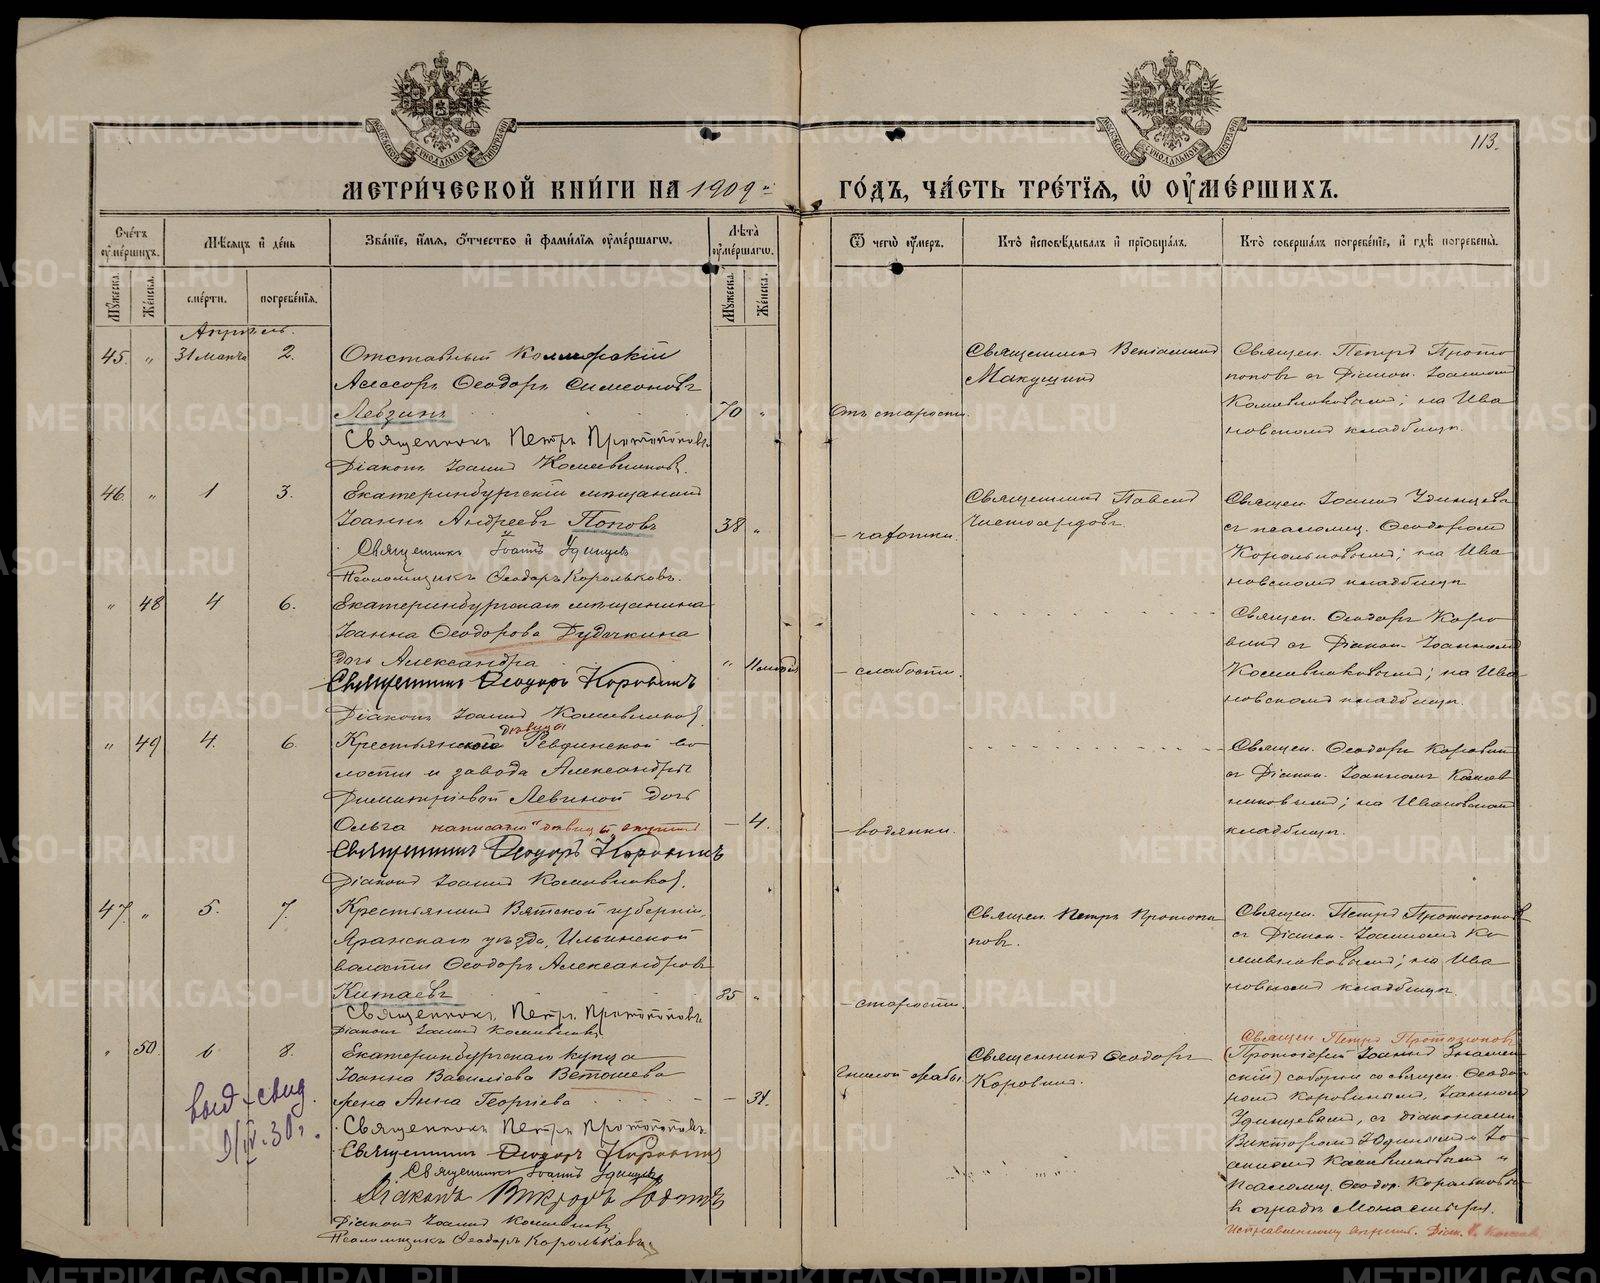 113.
МЕТРИ́ЧЕСКОЙ КНИ́ГИ НА 1909й
ГО́ДЪ, ЧА́СТЬ ТРЕ́ТІЯ, Ѡ ОУМЕ́РШИХЪ.
Сче́тъ оуме́ршихъ.
Мѣсяцъ и де́нь
Зва́ніе, и́мя, о́тчество и фами́лія оуме́ршагѡ.
Лѣта̀ оуме́ршагѡ.
Ѿ чегѡ̀ оу́меръ.
Кто̀ и́сповѣдывалъ и прїобща́лъ.
Кто̀ соверша́лъ погребе́ніе, и гдѣ̀ погребены̀.
Му́жеска. Же́нска. сме́рти. погребе́нія. Му́жеска. Же́нска.
Апрѣль.
45 " 31 марта 2. Отставный Коллежскій
Асессоръ Ѳеодоръ Симеоновъ
Левзинъ 70 "
Священникъ Петръ Протопоповъ.
Діаконъ Іоаннъ Кошевниковъ.
Отъ старости.
Священникъ Веніаминъ
Макушинъ
Священ. Петръ Прото
поповъ съ Діакон. Іоанномъ
Кошевниковымъ; на Ива
новскомъ кладбищѣ.
46. " 1 3. Екатеринбургскій мѣщанинъ
Іоаннъ Андреевъ Поповъ 38 "
Священникъ Іоаннъ Удинцевъ
Псаломщикъ Ѳеодоръ Корольковъ.
— чахотки.
Священникъ Павелъ
Чистосердовъ.
Священ. Іоаннъ Удинцевъ
съ псаломщ. Ѳеодоромъ
Корольковымъ; на Ива
новскомъ кладбищѣ
" 48 4 6. Екатеринбургскаго мѣщанина
Іоанна Ѳеодорова Дудочкина
дочь Александра
Священникъ Ѳеодоръ Коровинъ
Діаконъ Іоаннъ Кошевниковъ.
— слабости.
Священ. Ѳеодоръ Коро
винъ съ Діакон. Іоанномъ
Кошевниковымъ; на Ива
новскомъ кладбищѣ.
" 49 4. 6. Крестьянской дѣвицы Ревдинской во
лости и завода Александры
Димитріевой Левиной дочь
Ольга написано "дѣвицы" — 4.
Священникъ Ѳеодоръ Коровинъ
Діаконъ Іоаннъ Кошевниковъ.
— водянки.
Священ. Ѳеодоръ Коровинъ
съ Діакон. Іоанномъ Кошев
никовымъ; на Ивановскомъ
кладбищѣ.
47. " 5. 7. Крестьянинъ Вятской губерніи,
Яранскаго уѣзда, Ильинской
волости Ѳеодоръ Александровъ
Китаевъ 85 "
Священникъ Петръ Протопоповъ.
Діаконъ Іоаннъ Кошевниковъ
— старости.
Священ. Петръ Протопо
повъ.
Священ. Петръ Протопоповъ
съ Діакон. Іоанномъ Ко
шевниковымъ; на Ива
новскомъ кладбищѣ.
" 50. 6 8. Екатеринбургскаго купца
Іоанна Василіева Ветошева
жена Анна Георгіева — 31.
Священникъ Петръ Протопоповъ.
Священникъ Ѳеодоръ Коровинъ
Священникъ Іоаннъ Удинцевъ
Діаконъ Викторъ Юдинъ
Діаконъ Іоаннъ Кошевниковъ
Псаломщикъ Ѳеодоръ Корольковъ
выд. свид.
9/IV.30г.
Гнилой жабы.
Священникъ Ѳеодоръ
Коровинъ.
Священ. Петръ Протопоповъ
(Протоіерей Іоаннъ Знамен
скій) соборнѣ со священ. Ѳеодо
ромъ Коровинымъ, Іоанномъ
Удинцевымъ, съ діаконами
Викторомъ Юдинымъ и Іо
анномъ Кошевниковымъ и
псаломщ. Ѳеодор. Корольковымъ
въ оградѣ Монастыря.
Исправленному вѣрить.